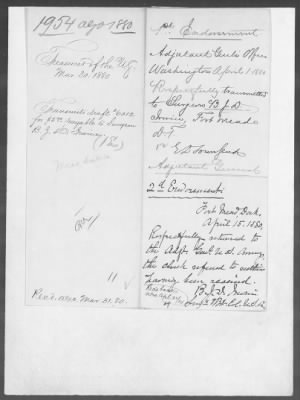 1954 ago 1880
Treasurer of the U.S.
Mar. 20. 1880
Transmits draft
for payable to Surgeon
B. J. D. Irwin.
(1 Inc)
11
Recd. Mar. 31. 80.
1st Endorsement
Adjutant Genl's Office
Washington April 1. 1880
Respectfully transmitted
to Surgeon B. J. D.
Irwin, Fort Meade
D.T.
E. D. Townsend
Adjutant General
2d Endorsement.
Fort Meade Dak.
April 15. 1880.
Respectfully returned to
the Adjt. Genl. U.S. Army,
the check referred to within
having been received.
B. J. D. Irwin